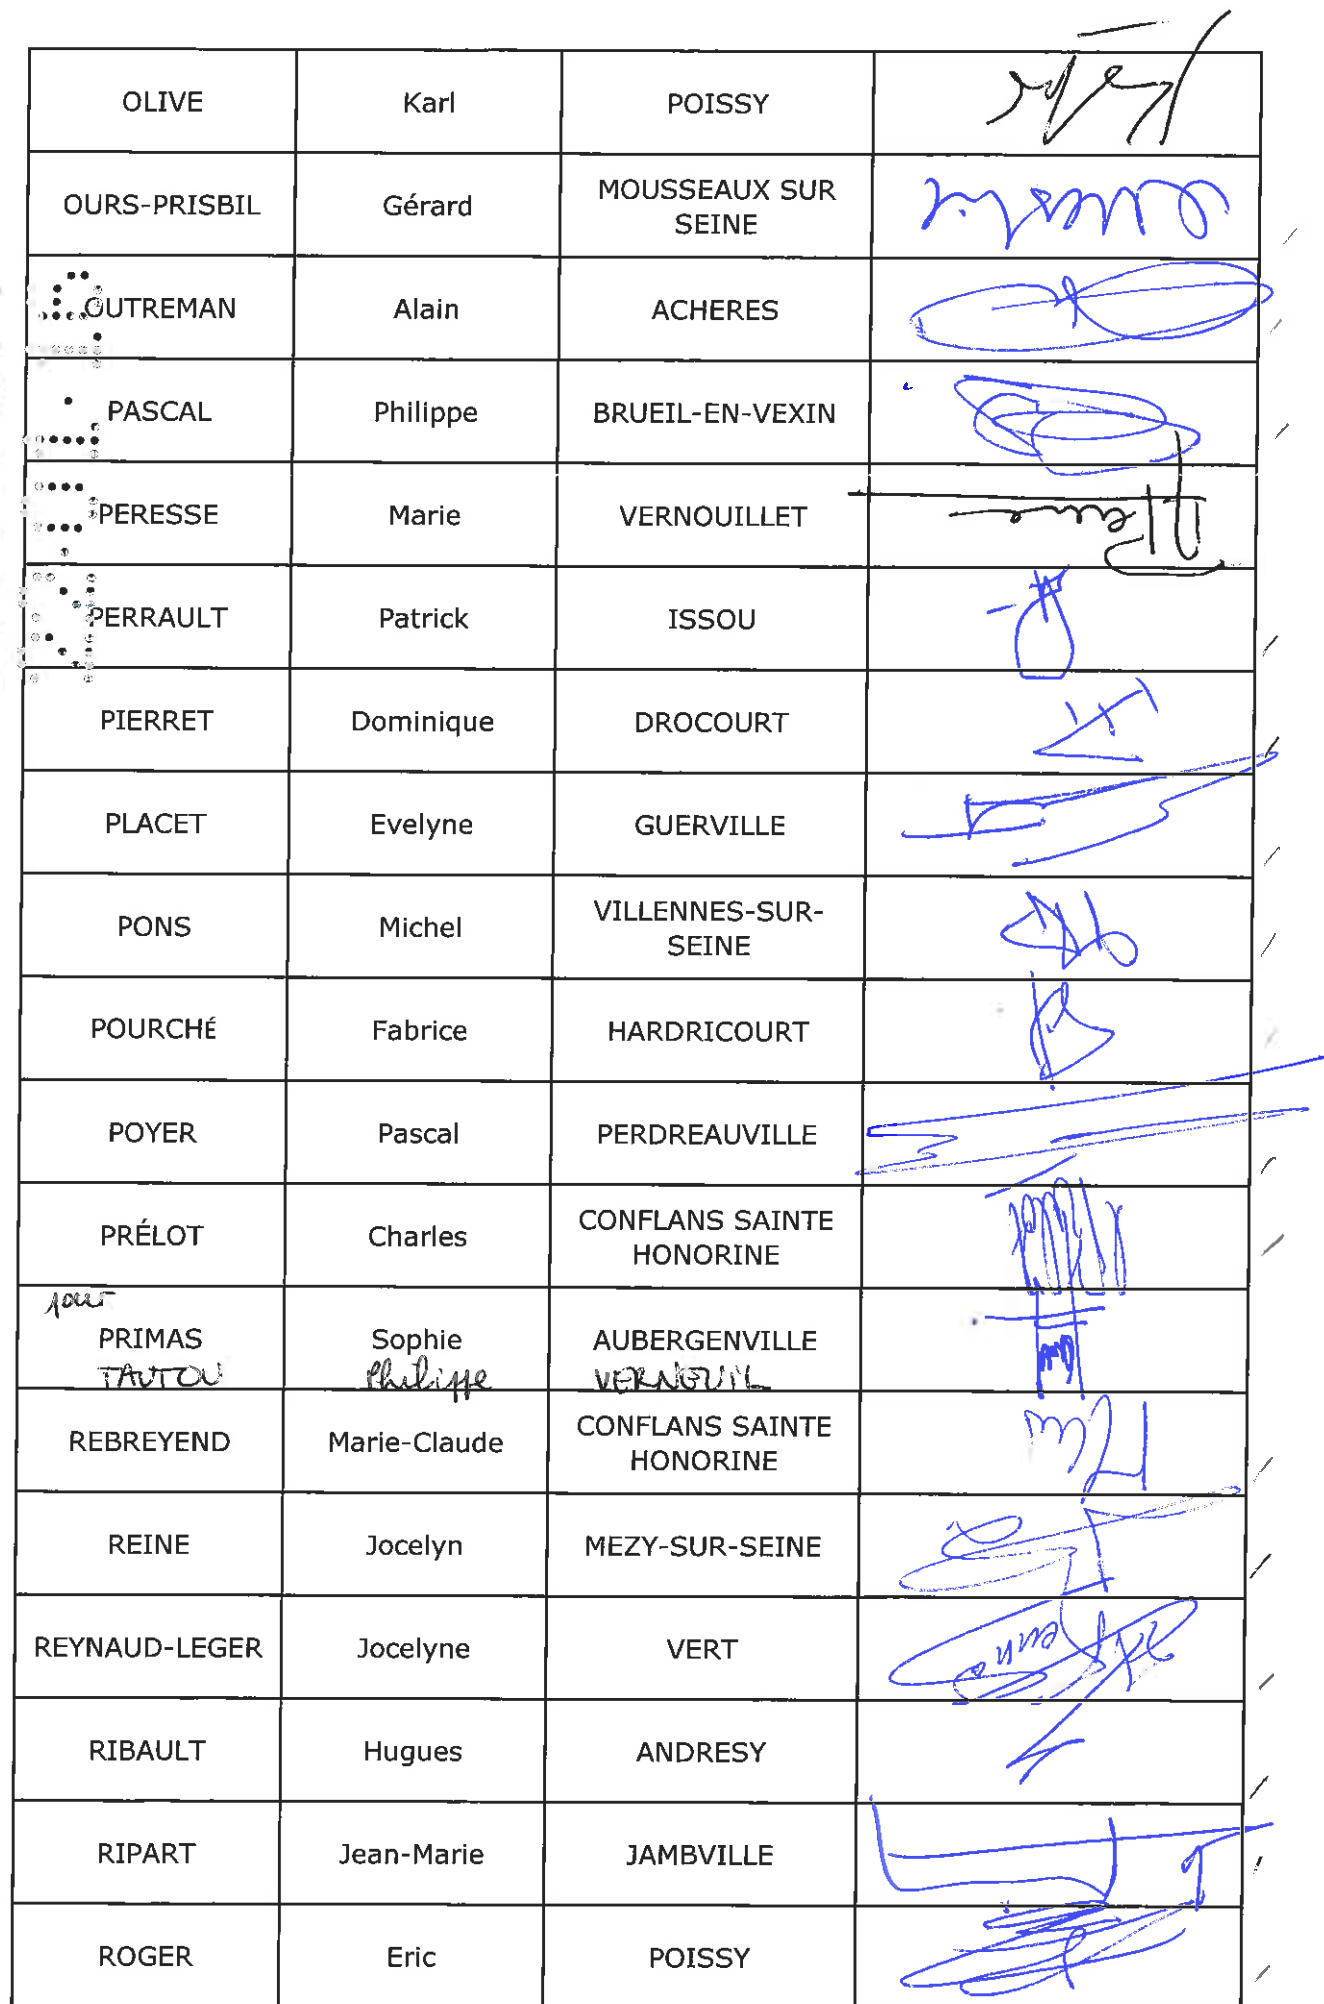 OLIVE Karl POISSY
OURS-PRISBIL Gérard MOUSSEAUX SUR
SEINE
OUTREMAN Alain ACHERES
PASCAL Philippe BRUEIL-EN-VEXIN
PERESSE Marie VERNOUILLET
PERRAULT Patrick ISSOU
PIERRET Dominique DROCOURT
PLACET Evelyne GUERVILLE
PONS Michel VILLENNES-SUR-
SEINE
POURCHÉ Fabrice HARDRICOURT
POYER Pascal PERDREAUVILLE
PRÉLOT Charles CONFLANS SAINTE
HONORINE
pour
PRIMAS Sophie AUBERGENVILLE
TAUTOU Philippe VERNEUIL
REBREYEND Marie-Claude CONFLANS SAINTE
HONORINE
REINE Jocelyn MEZY-SUR-SEINE
REYNAUD-LEGER Jocelyne VERT
RIBAULT Hugues ANDRESY
RIPART Jean-Marie JAMBVILLE
ROGER Eric POISSY